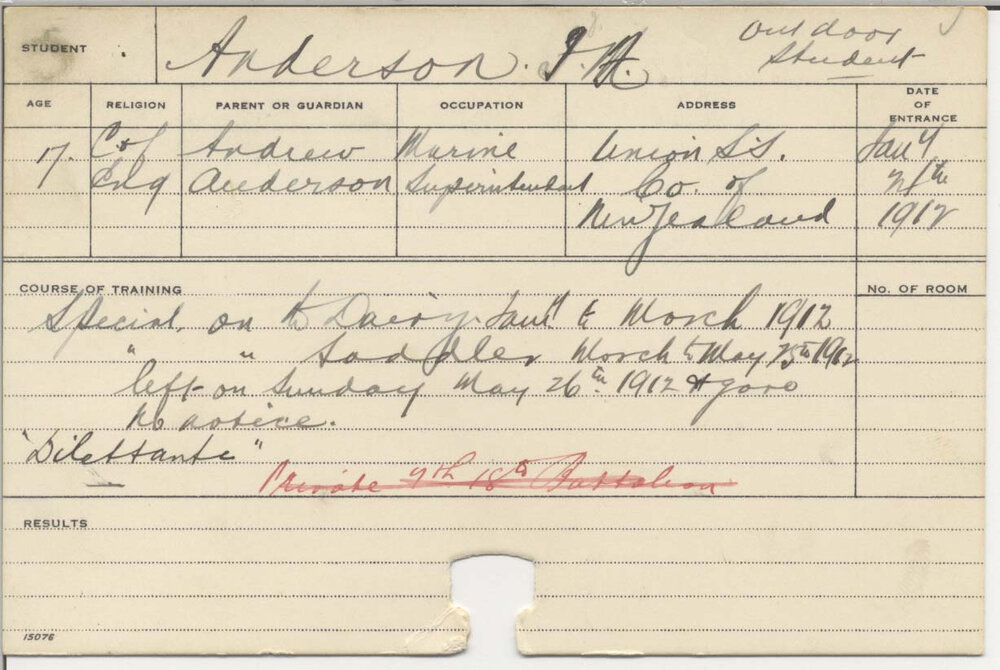 STUDENT Anderson. J. H. Outdoor
Student
AGE RELIGION PARENT OR GUARDIAN OCCUPATION ADDRESS DATE OF ENTRANCE
17. C of Andrew Marine Union S.S. Jany
Eng Anderson Superintendent Co. of
New Zealand 1912
COURSE OF TRAINING No. OF ROOM
Special. on Dairy. Jany to March 1912
" " Saddler March to May 25th 1912
left on Sunday May 26th 1912 & gave
no notice.
"Dilettante"
Private 18th Battalion
RESULTS
15076